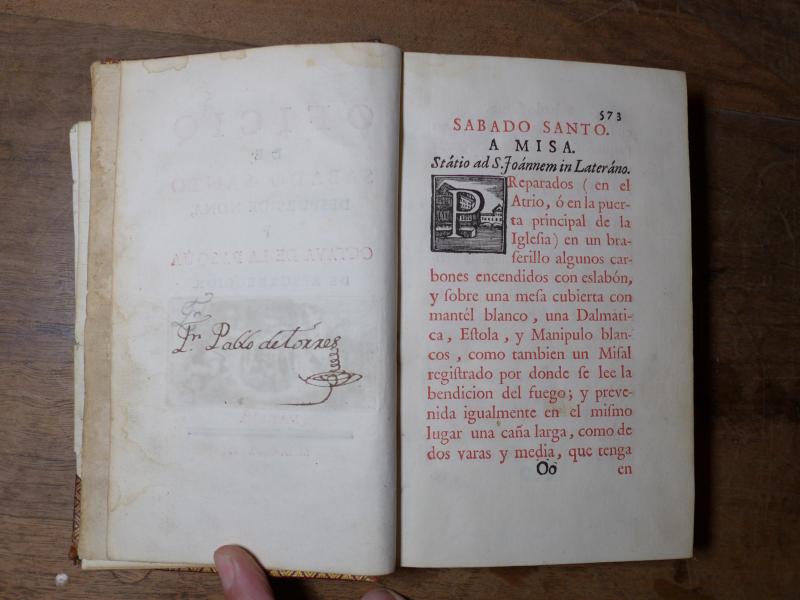 Fr.
Fr. Pablo de Torres
573
SABADO SANTO.
A MISA.
Státio ad S. Joánnem in Lateráno.
PReparados (en el
Atrio, ó en la puer-
ta principal de la
Igleſia) en un bra-
ſerillo algunos car-
bones encendidos con eslabón,
y ſobre una meſa cubierta con
mantél blanco, una Dalmati-
ca, Eſtola, y Manipulo blan-
cos, como tambien un Miſal
regiſtrado por donde ſe lee la
bendicion del fuego; y preve-
nida igualmente en el miſmo
lugar una caña larga, como de
dos varas y media, que tenga
Oo en